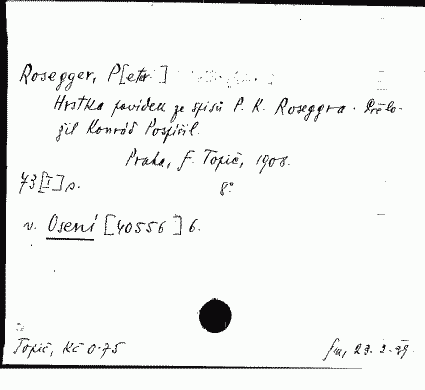 Rosegger, P[eter]
Hrstka povídek ze spisů P. K. Roseggra. Přelo-
žil Konrád Pospíšil.
Praha, F. Topič, 1908.
73[I]s. 8°
v. Osení [40556] 6.
Topič, Kč 0.75